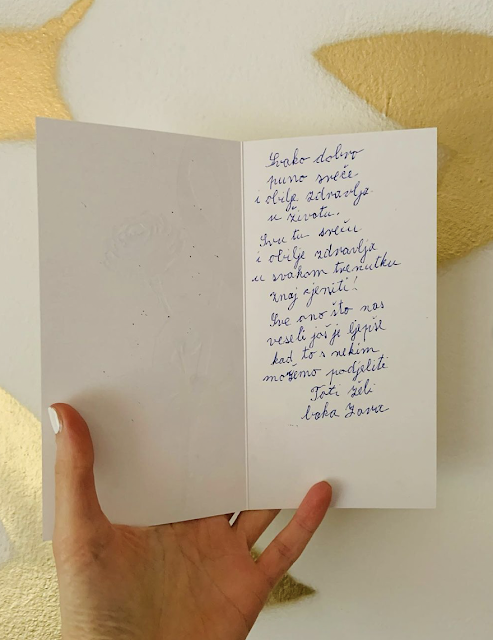 Svako dobro
puno sreće
i obilje zdravlja
u životu.
Svu tu sreću
i obilje zdravlja
u svakom trenutku
znaj cjeniti!
Sve ono što nas
veseli još je ljepše
kad to s nekim
možemo podjeliti
želi
baka